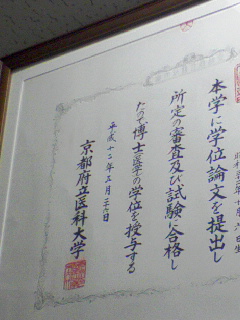 本学に学位論文を提出し
所定の審査及び試験に合格し
たので博士(医学)の学位を授与する
平成十二年五月二十六日
京都府立医科大学